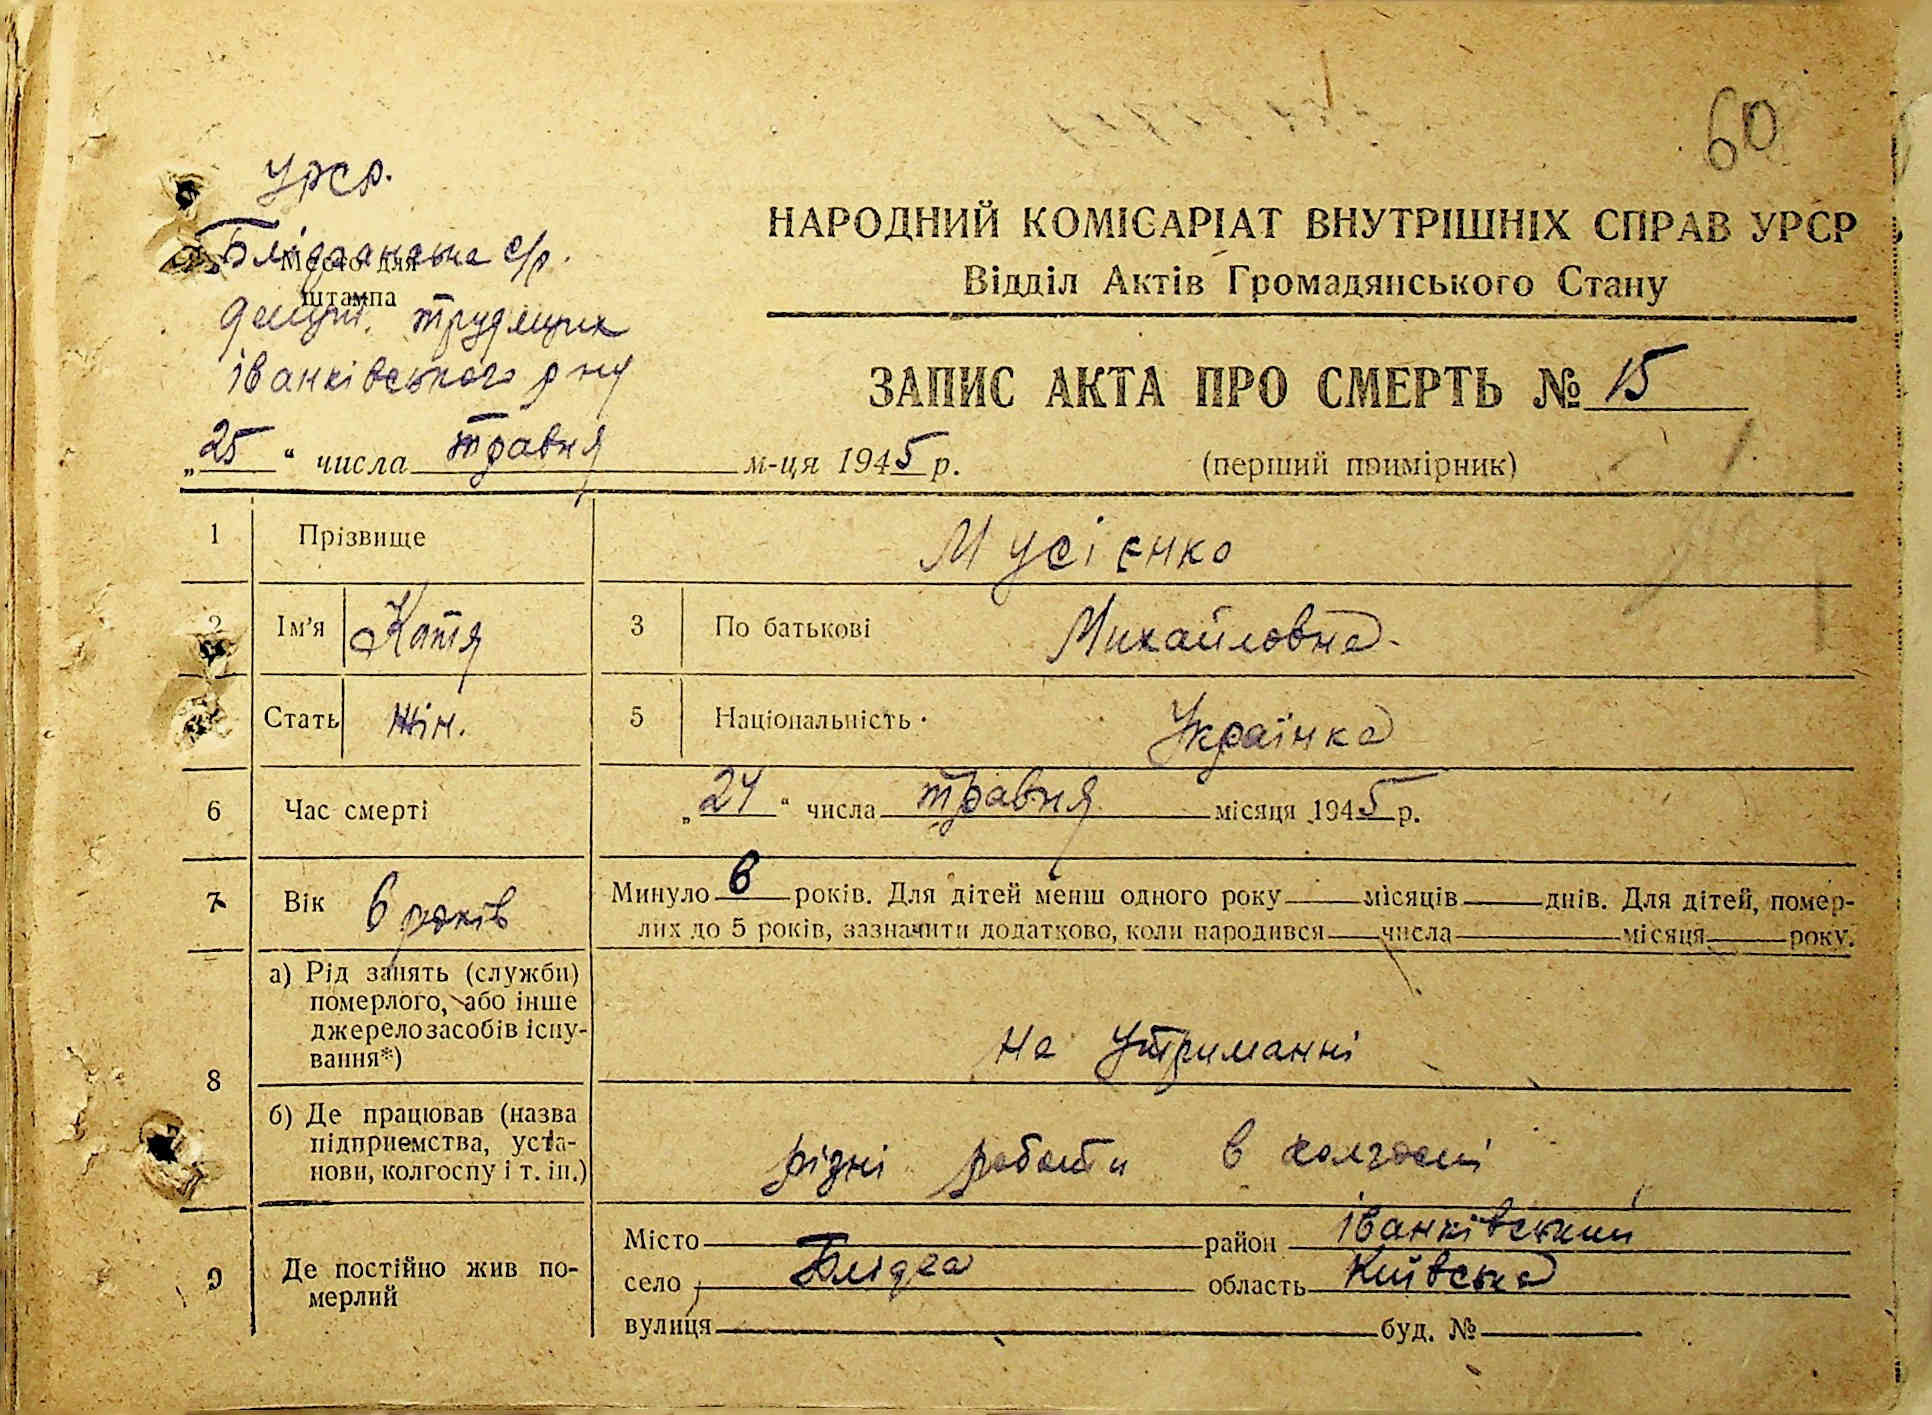 60
УРСР.
Блідчанська с/р.
Место для
штампа
депут. трудящих
іванківського р ну
НАРОДНИЙ КОМІСАРІАТ ВНУТРІШНІХ СПРАВ УРСР
Відділ Актів Громадянського Стану
ЗАПИС АКТА ПРО СМЕРТЬ № 15
„25“ числа травня м-ця 1945 р. (перший примірник)
1 Прізвище Мусієнко
2 Ім’я Катя 3 По батькові Михайловна.
Стать жін. 5 Національність Українка
6 Час смерті „24“ числа травня місяця 1945 р.
7 Вік 6 років Минуло 6 років. Для дітей менш одного року місяців днів. Для дітей, помер-
лих до 5 років, зазначити додатково, коли народився числа місяця року.
8 а) Рід занять (служби)
померлого, або інше
джерело засобів існу-
вання*) на утриманні
б) Де працював (назва
підприемства, уста-
нови, колгоспу і т. ін.) різні роботи в колгоспі
9 Де постійно жив по-
мерлий
Місто район іванківський
село Блідча область Київська
вулиця буд. №